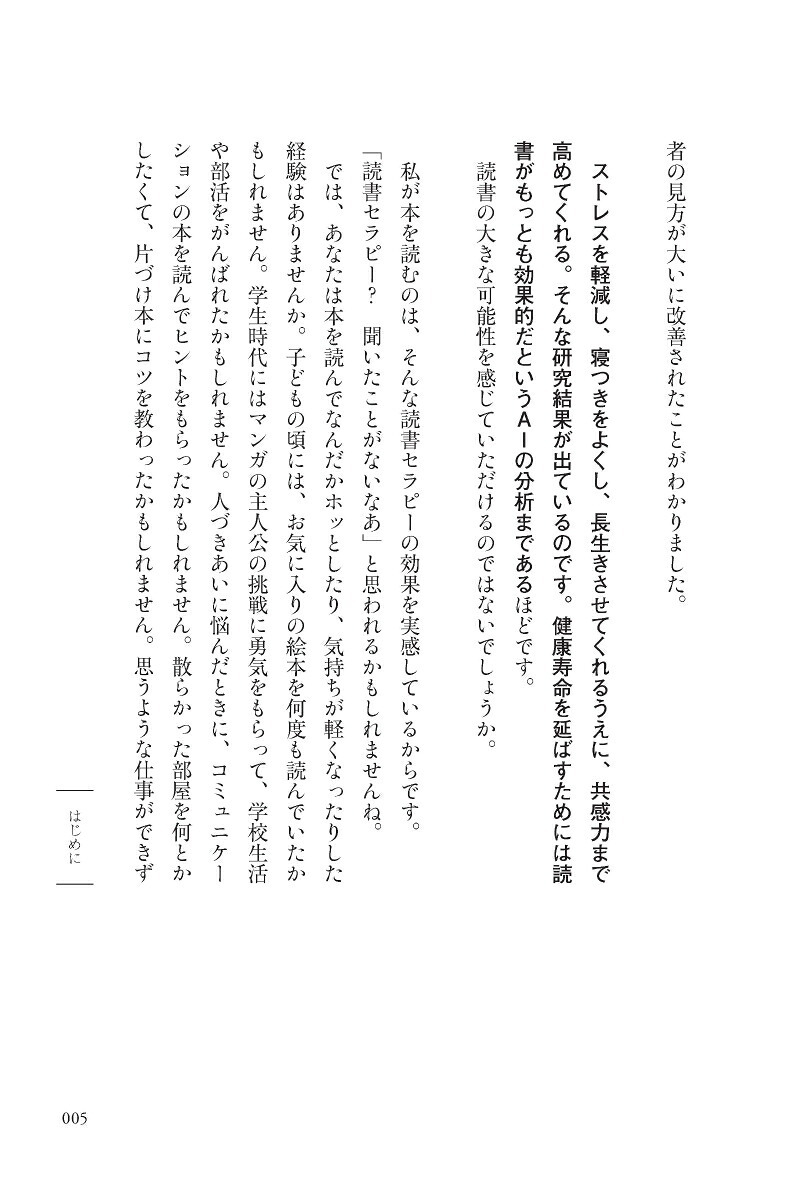 者の見方が大いに改善されたことがわかりました。
ストレスを軽減し、寝つきをよくし、長生きさせてくれるうえに、共感力まで
高めてくれる。そんな研究結果が出ているのです。健康寿命を延ばすためには読
書がもっとも効果的だというAIの分析まであるほどです。
読書の大きな可能性を感じていただけるのではないでしょうか。
私が本を読むのは、そんな読書セラピーの効果を実感しているからです。
「読書セラピー？　聞いたことがないなあ」と思われるかもしれませんね。
では、あなたは本を読んでなんだかホッとしたり、気持ちが軽くなったりした
経験はありませんか。子どもの頃には、お気に入りの絵本を何度も読んでいたか
もしれません。学生時代にはマンガの主人公の挑戦に勇気をもらって、学校生活
や部活をがんばれたかもしれません。人づきあいに悩んだときに、コミュニケー
ションの本を読んでヒントをもらったかもしれません。散らかった部屋を何とか
したくて、片づけ本にコツを教わったかもしれません。思うような仕事ができず
はじめに
005